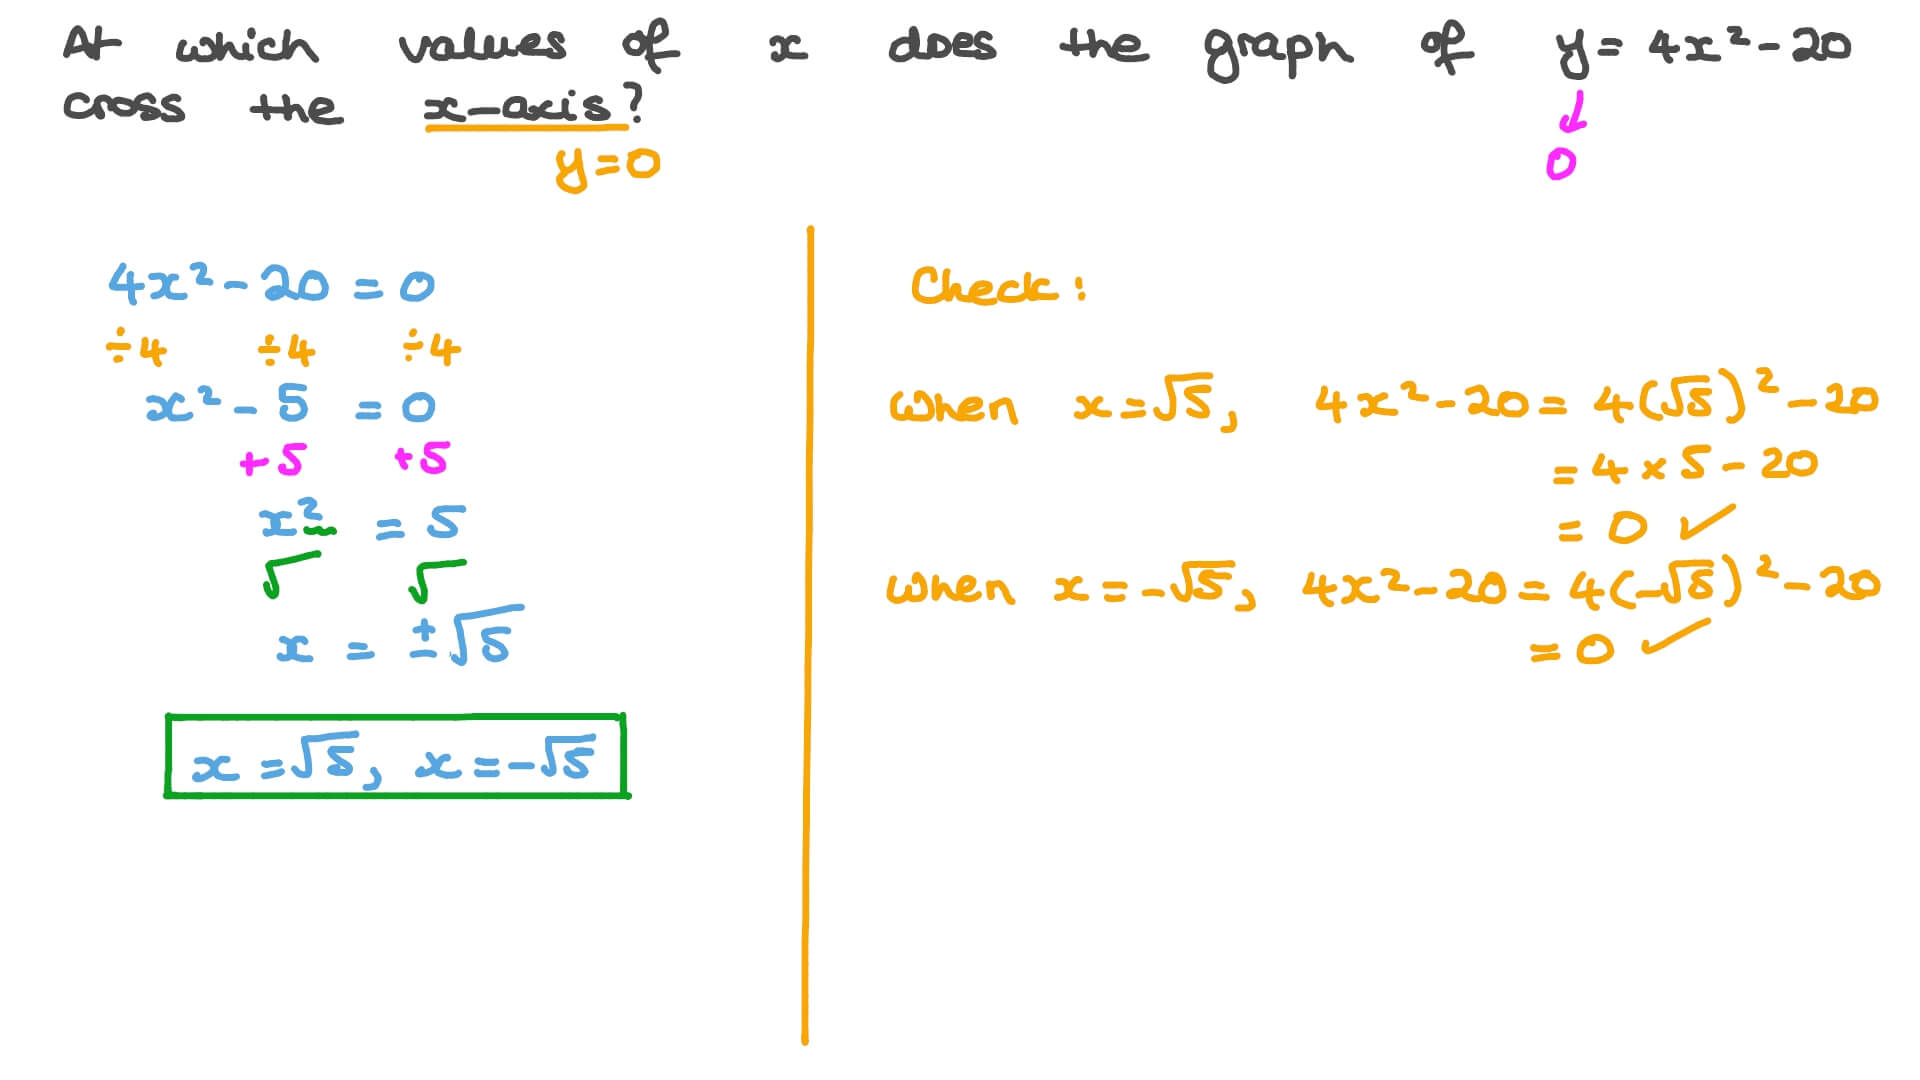 At which values of x does the graph of y = 4x² - 20
cross the x-axis?
y = 0
↓
0
4x² - 20 = 0
÷4 ÷4 ÷4
x² - 5 = 0
+5 +5
x² = 5
√ √
x = ±√5
x = √5, x = -√5
Check:
When x = √5, 4x² - 20 = 4(√5)² - 20
= 4 × 5 - 20
= 0 ✓
When x = -√5, 4x² - 20 = 4(-√5)² - 20
= 0 ✓